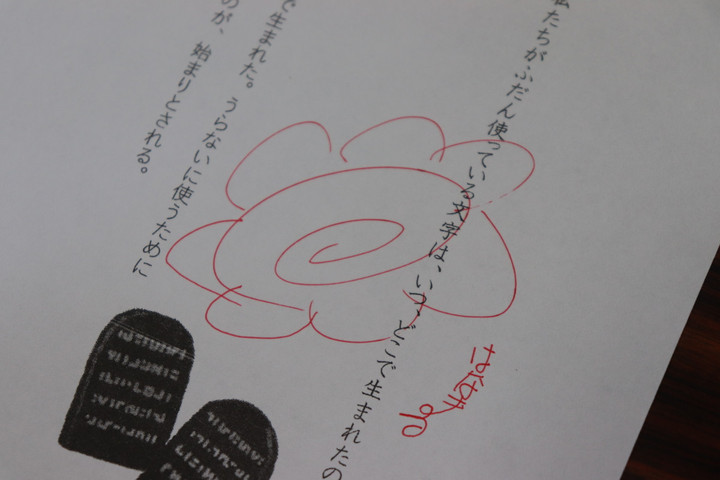 私たちがふだん使っている文字は、いつ、どこで生まれたの
で生まれた。うらないに使うために
のが、始まりとされる。